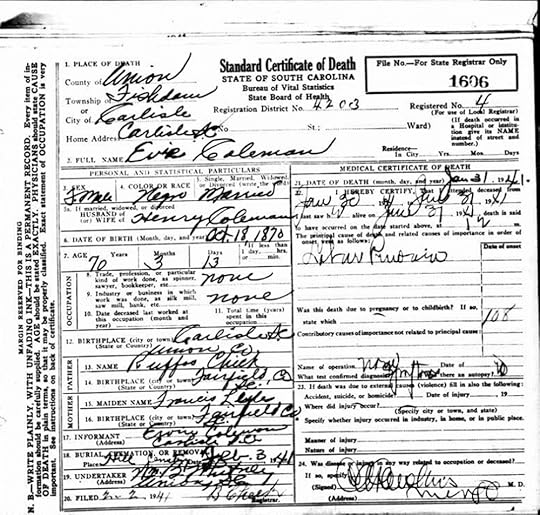 Standard Certificate of Death
STATE OF SOUTH CAROLINA
Bureau of Vital Statistics
State Board of Health
File No.—For State Registrar Only
1606
1. PLACE OF DEATH
County of Union
Township of Fishdam
City of Carlisle
Registration District No. 4203
Registered No. 4
(For use of Local Registrar)
(If death occurred in a Hospital or institution give its NAME instead of street and number.)
Home Address Carlisle SC No. St.; Ward)
2. FULL NAME Coleman
Residence— In City Yrs. Mos. Days
PERSONAL AND STATISTICAL PARTICULARS
3. SEX 4. COLOR OR RACE 5. Single, Married, Widowed, or Divorced (write the word)
Female Negro Married
5a. If married, widowed, or divorced
HUSBAND of
(or) WIFE of Henry Coleman
6. DATE OF BIRTH (Month, day, and year) Oct 18 1870
7. AGE Years Months Days If less than 1 day, hrs. or min.
70 3 13
OCCUPATION
8. Trade, profession, or particular kind of work done, as spinner, sawyer, bookkeeper, etc. none
9. Industry or business in which work was done, as silk mill, saw mill, bank, etc. none
10. Date deceased last worked at this occupation (month and year)
11. Total time (years) spent in this occupation
12. BIRTHPLACE (city or town) Carlisle SC
(State or County) Union Co
FATHER
13. NAME Cheek
14. BIRTHPLACE (city or town) Fairfield Co
(State or Country) SC
MOTHER
15. MAIDEN NAME Francis Lyles
16. BIRTHPLACE (city or town) Fairfield Co
(State or County)
17. INFORMANT Coleman
(Address) Carlisle SC
18. BURIAL, CREMATION, OR REMOVAL
Place Date Feb 3 41
19. UNDERTAKER
(Address) Union SC
20. FILED 2-2 1941
Registrar.
MEDICAL CERTIFICATE OF DEATH
21. DATE OF DEATH (month, day, and year) Jan 31, 1941.
22. I HEREBY CERTIFY, That I attended deceased from
Jan 30 1941
I last saw h alive on Jan 31 1941 death is said
to have occurred on the date stated above, at
The principal cause of death and related causes of importance in order of onset were as follows:
Date of onset
Lobar Pneumonia
108
Was this death due to pregnancy or to childbirth? If so, state which
Contributory causes of importance not related to principal cause:
Name of operation Date of
What test confirmed diagnosis? Was there an autopsy? no
23. If death was due to external causes (violence) fill in also the following:
Accident, suicide, or homicide? Date of injury , 19
Where did injury occur?
(Specify city or town, and state)
Specify whether injury occurred in industry, in home, or in public place.
Manner of injury
Nature of injury
24. Was disease or injury in any way related to occupation of deceased?
If so, specify
(Signed) M. D.
(Address)
MARGIN RESERVED FOR BINDING
N. B.—WRITE PLAINLY WITH UNFADING INK—THIS IS A PERMANENT RECORD. Every item of information should be carefully supplied. AGE should be stated EXACTLY. PHYSICIANS should state CAUSE OF DEATH in plain terms, so that it may be properly classified. Exact statement of OCCUPATION is very important. See instructions on back of certificate.